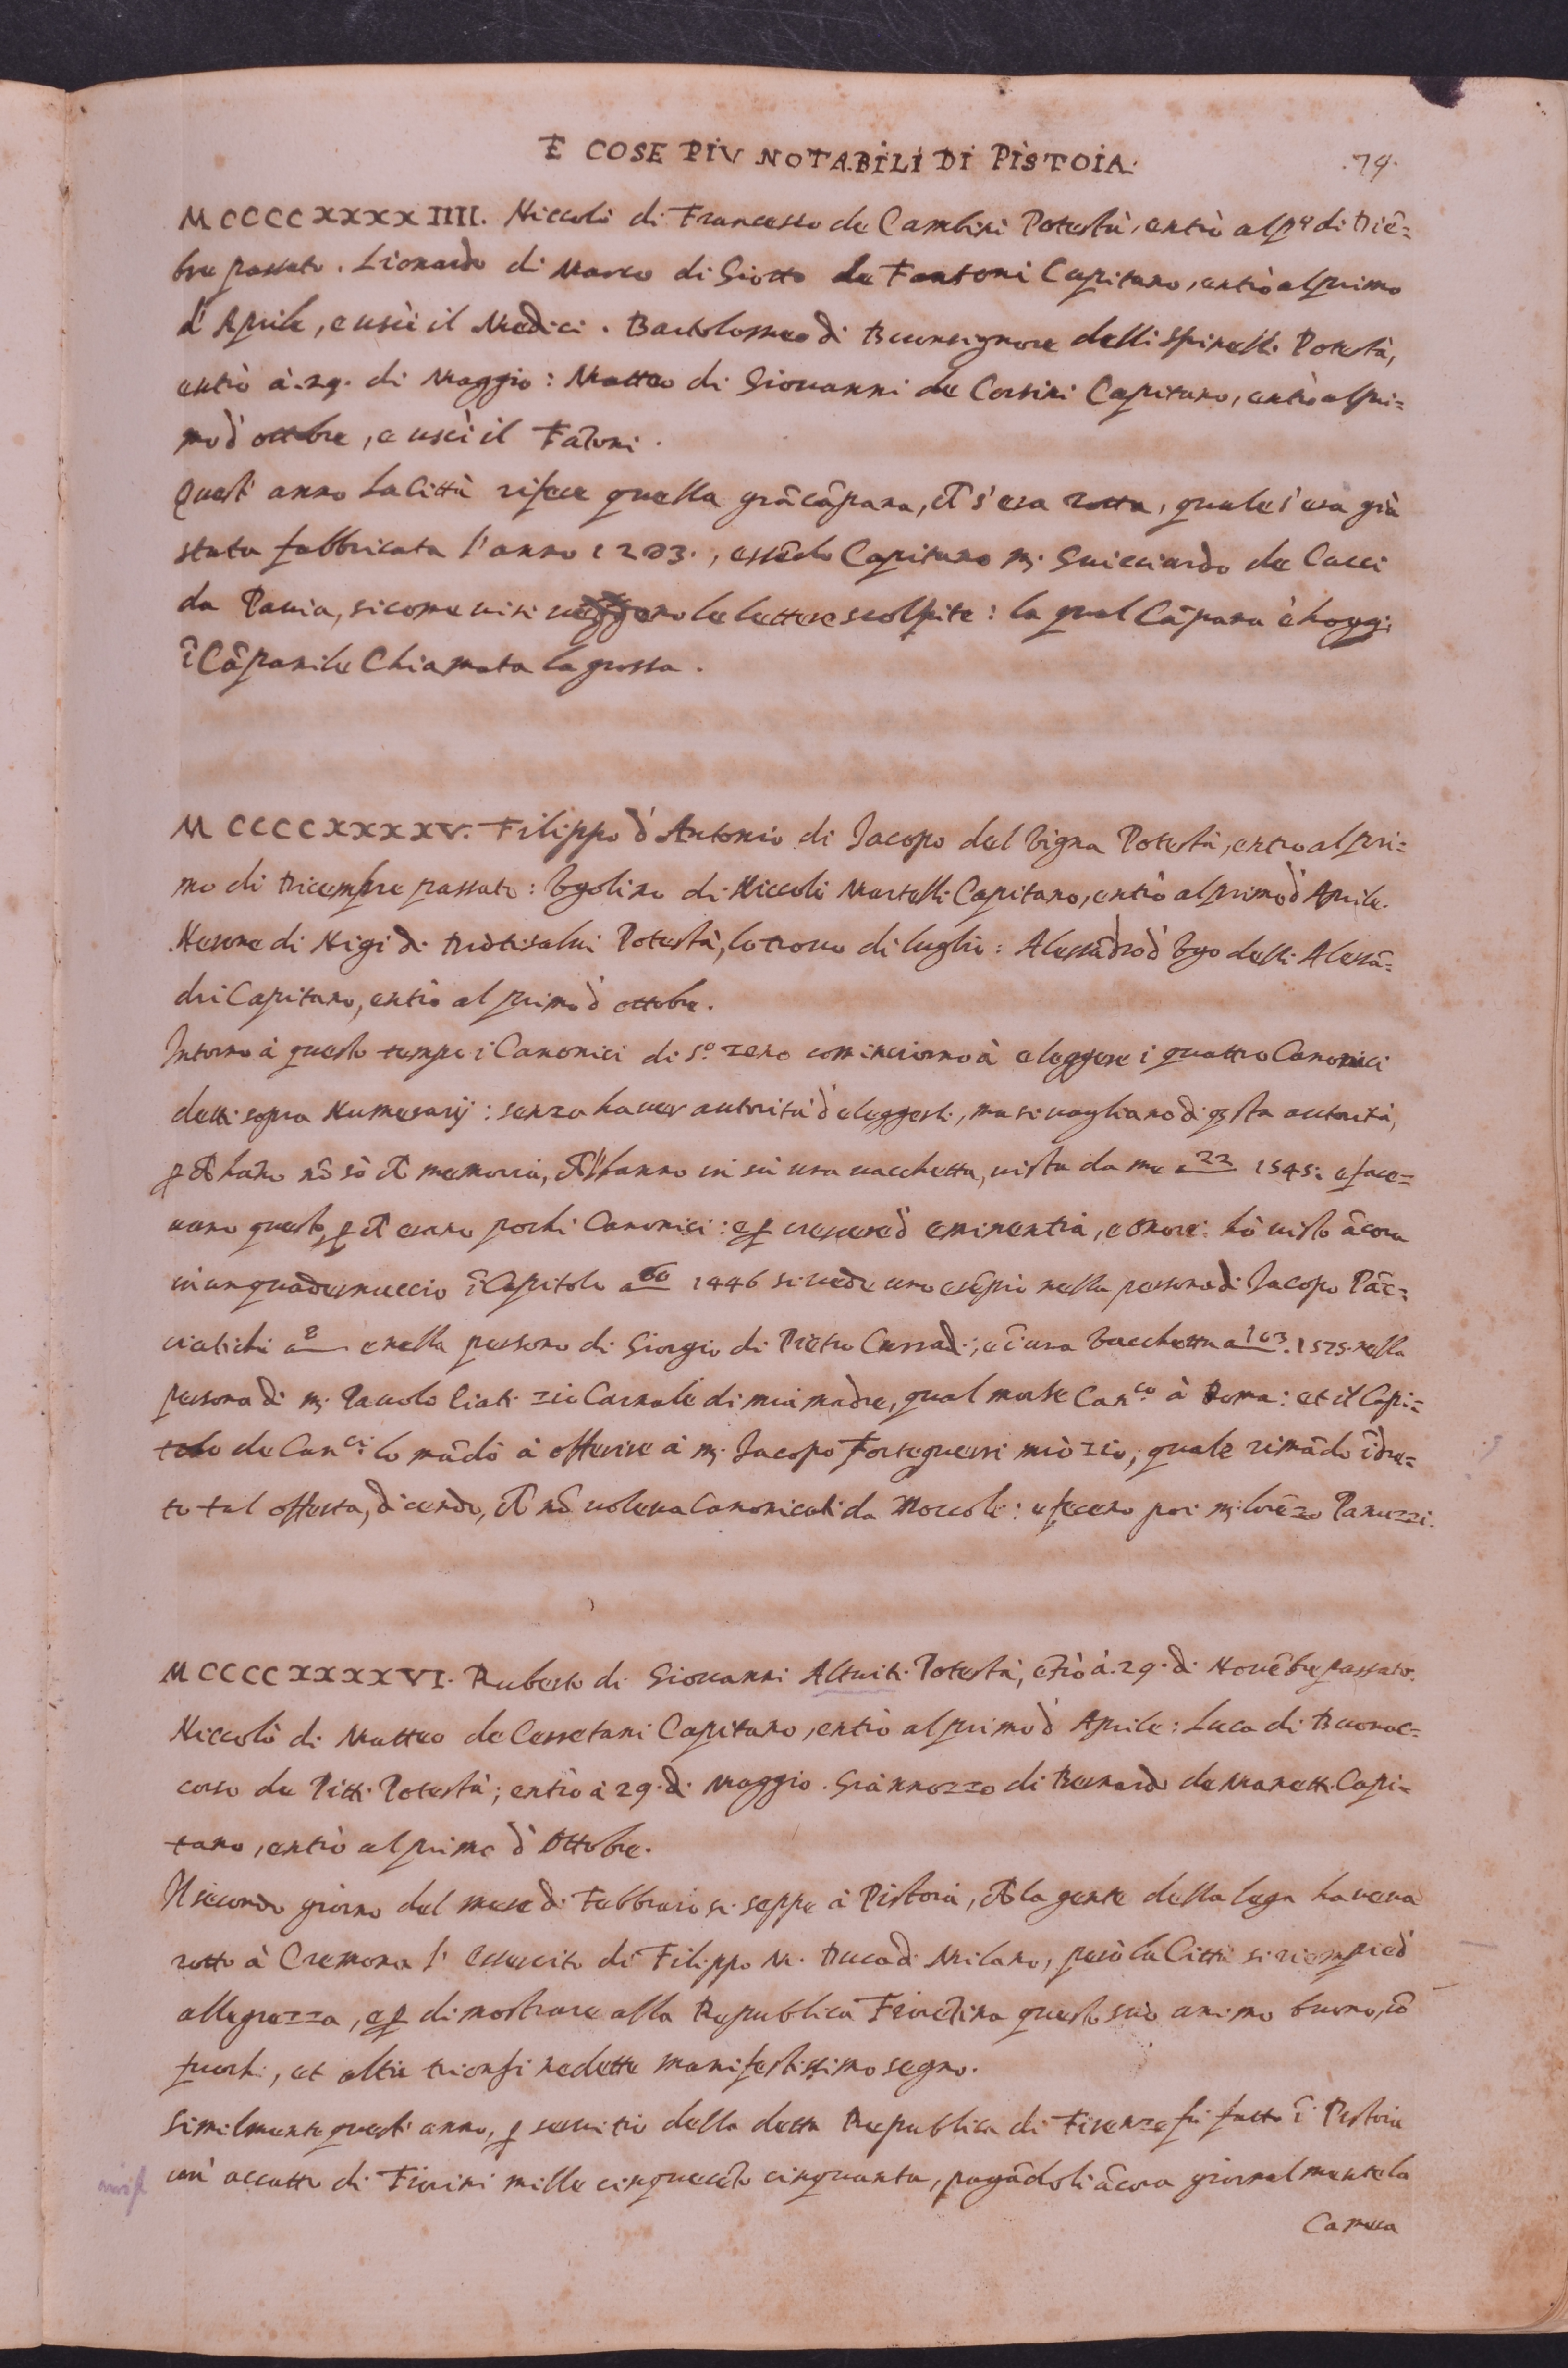 E COSE PIV NOTABILI DI PISTOIA.
.79.
MCCCCXXXXIIII. Niccolò di Francesco de Cambini Potestà, entrò al pº di Diĉē=
bre passato. Lionardo di Marco di Giotto de Fantoni Capitano, entrò al primo
d'Aprile, e uscì il Medici. Bartolommeo di Buonsignore delli Spinelli Potestà,
entrò à .29. di Maggio: Matteo di Giovanni de Corsini Capitano, entrò al pri=
mo d'ottobre, e uscì il Fātoni.
Quest'anno la Città rifece quella grā cāpana, ch s'era rotta, quale s'era già
stata fabbricata l'anno 1203., essēdo Capitano m. Guicciardo de Cacci
da Pavia, sicome vi si veggono le lettere scolpite: la qual Cāpana è hoggi
ī Cāpanile Chiamata la grossa.
MCCCCXXXXV. Filippo d'Antonio di Jacopo del Vigna Potestà, entro al pri=
mo di Dicembre passato: Vgolino di Niccolò Martelli Capitano, entrò al primo d'Aprile.
Nerone di Nigi di Diotisalvi Potestà, lo trovo di luglio: Alessādro d'Vgo delli Alessā=
dri Capitano, entrò al primo d'ottobre.
Intorno à questo tempo i Canonici di Sº Zeno cominciorno à eleggere i quattro Canonici
detti sopra Numerarij: senza haver autorità d'eleggerli, ma si vagliano di qsta autorità,
p ch hāno nō sò ch memoria, ch l'hanno in sù una vacchetta, vista da me a 22 1545: e face=
vano questo, p ch erano pochi Canonici: e p crescere d'eminentia, e onore: hò visto ācora
in un quadernuccio ī Capitolo a 60 1446 si vede uno esēpio nella persona di Jacopo Pāc=
ciatichi a 8 e nella persona di Giorgio di Pietro Curradi; e ī una Vacchetta a 163. 1525. nella
persona di m. Pavolo Liati zio Carnale di mia madre, qual morse Can.co à Roma: et il Capi=
tolo de Can.ci lo mādò à offerire à m. Jacopo Forteguerri mio zio, quale rimādò īdre=
to tal offerta, dicendo, ch nō voleva Canonicati da Moccoli: e fecero poi m. Lorēzo Panuzzi.
MCCCCXXXXVI. Ruberto di Giovanni Altoviti Potestà, ētrò à .29. di Novēbre passato.
Niccolò di Matteo de Cerretani Capitano, entrò al primo d'Aprile: Luca di Buonac=
corso de Pitti Potestà; entrò à 29. di Maggio. Giannozzo di Bernardo de Manetti Capi=
tano, entrò al primo d'Ottobre.
Il secondo giorno del mese di Febbraio si seppe à Pistoia, ch la gente della lega haveva
rotto à Cremona l'essercito di Filippo M. Duca di Milano, però la Città si riempiè d'
allegrezza, e p dimostrare alla Republica Fiorētina questo suo animo buono, cō
fuochi, et altri trionfi ne dette manifestissimo segno.
Similmente quest'anno, p servitio della detta Republica di Firenze fù fatto ī Pistoia
un'accatto di Fiorini mille cinquecēto cinquanta, pagādoli ācora giornalmente la
Camera